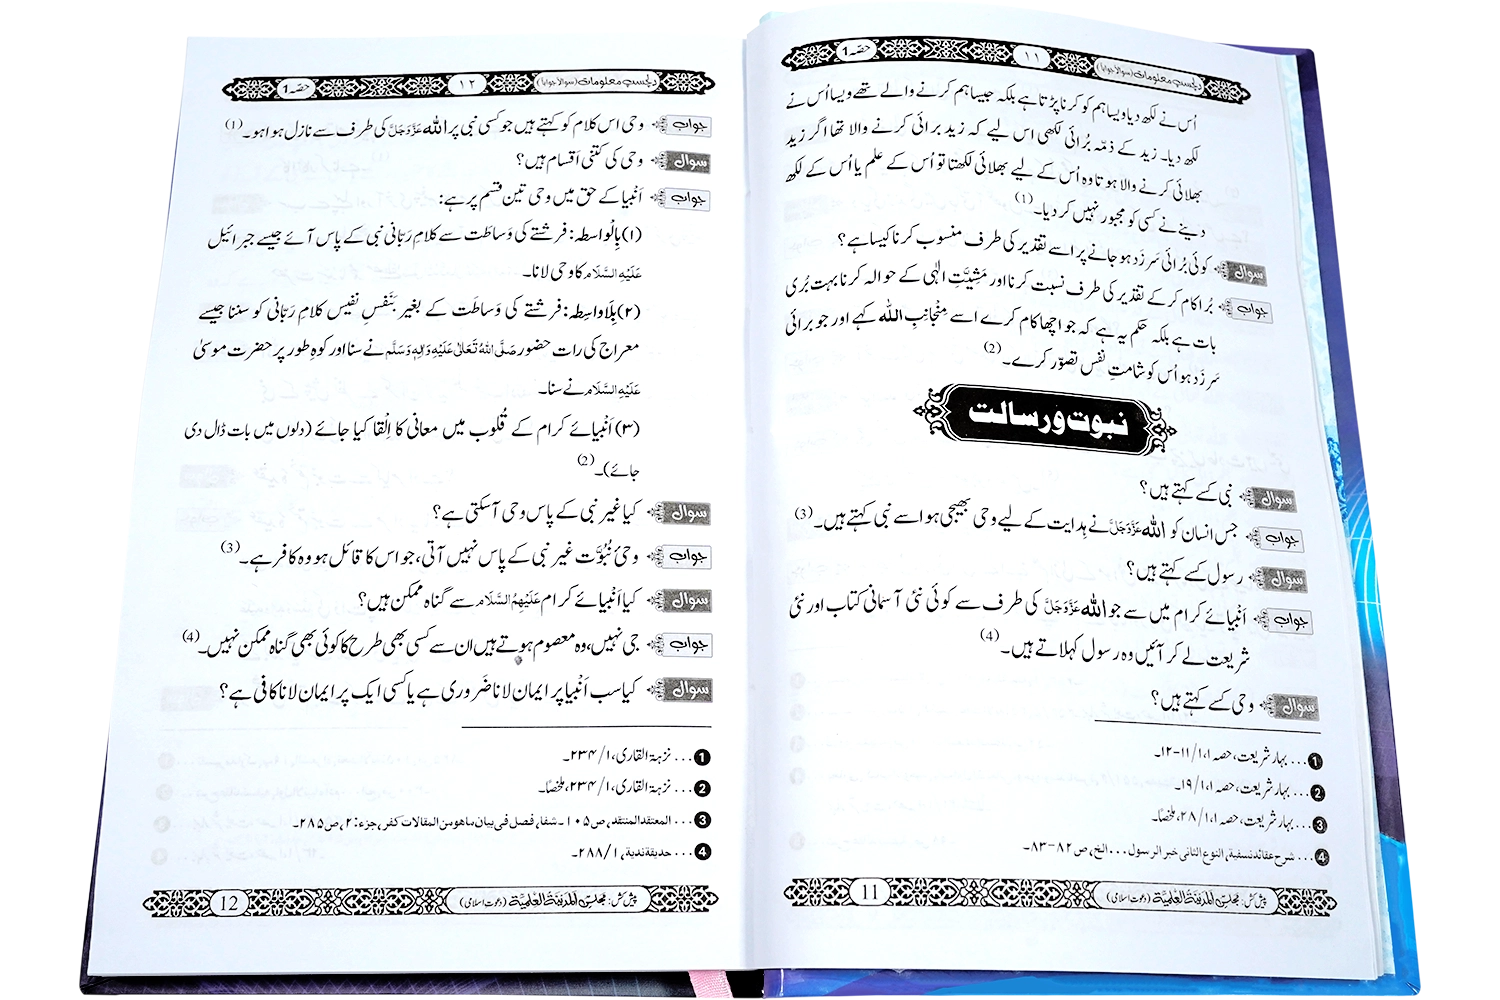 دلچسپ معلومات (سوالاً جواباً) ۱۱ حصّہ 1
اُس نے لکھ دیا ویسا ہم کو کرنا پڑتا ہے بلکہ جیسا ہم کرنے والے تھے ویسا اُس نے
لکھ دیا۔ زید کے ذمّہ بُرائی لکھی اس لیے کہ زید برائی کرنے والا تھا اگر زید
بھلائی کرنے والا ہوتا وہ اُس کے لیے بھلائی لکھتا تو اُس کے علم یا اُس کے لکھ
دینے نے کسی کو مجبور نہیں کر دیا۔(1)
سوال کوئی بُرائی سَرزَد ہو جانے پر اسے تقدیر کی طرف منسوب کرنا کیسا ہے؟
جواب بُرا کام کرکے تقدیر کی طرف نسبت کرنا اور مَشِیَّتِ الٰہی کے حوالہ کرنا بہت بُری
بات ہے بلکہ حکم یہ ہے کہ جو اچھا کام کرے اسے مِنْجانِبِ اللہ کہے اور جو برائی
سَرزَد ہو اُس کو شامتِ نفس تصوّر کرے۔(2)
نبوت و رسالت
سوال نبی کسے کہتے ہیں؟
جواب جس انسان کو اللہ عَزَّوَجَلَّ نے ہِدایت کے لیے وحی بھیجی ہو اسے نبی کہتے ہیں۔(3)
سوال رسول کسے کہتے ہیں؟
جواب اَنْبیائے کرام میں سے جو اللہ عَزَّوَجَلَّ کی طرف سے کوئی نئی آسمانی کتاب اور نئی
شریعت لے کر آئیں وہ رسول کہلاتے ہیں۔(4)
سوال وحی کسے کہتے ہیں؟
1 ... بہار شریعت، حصہ ۱، ۱/ ۱۱-۱۲۔
2 ... بہار شریعت، حصہ ۱، ۱/ ۱۹۔
3 ... بہار شریعت، حصہ ۱، ۱/ ۲۸، ملخصاً۔
4 ... شرح عقائد نسفیة، النوع الثانی خبر الرسول ... الخ، ص ۸۲-۸۳۔
پیش کش: مجلس المدینۃ العلمیۃ (دعوت اسلامی) 11
دلچسپ معلومات (سوالاً جواباً) ۱۲ حصّہ 1
جواب وحی اس کلام کو کہتے ہیں جو کسی نبی پر اللہ عَزَّوَجَلَّ کی طرف سے نازل ہوا ہو۔(1)
سوال وحی کی کتنی اَقسام ہیں؟
جواب اَنْبیا کے حق میں وحی تین قسم پر ہے:
(۱) بِالْواسِطہ: فرشتے کی وَساطَت سے کلامِ رَبّانی نبی کے پاس آئے جیسے جبرائیل
عَلَیْہِ السَّلَام کا وحی لانا۔
(۲) بِلَاواسِطہ: فرشتے کی وَساطَت کے بغیر بَنَفْسِ نفیس کلامِ رَبّانی کو سننا جیسے
معراج کی رات حضور صَلَّی اللہُ تَعَالٰی عَلَیْہِ وَاٰلِہٖ وَسَلَّم نے سنا اور کوہِ طور پر حضرت موسیٰ
عَلَیْہِ السَّلَام نے سنا۔
(۳) اَنْبیائے کرام کے قُلوب میں معانی کا اِلْقا کیا جائے (دلوں میں بات ڈال دی
جائے)۔(2)
سوال کیا غیرِ نبی کے پاس وحی آسکتی ہے؟
جواب وحیٔ نُبُوَّت غیر نبی کے پاس نہیں آتی، جو اس کا قائل ہو وہ کافر ہے۔(3)
سوال کیا اَنْبیائے کرام عَلَیْہِمُ السَّلَام سے گناہ ممکن ہیں؟
جواب جی نہیں، وہ معصوم ہوتے ہیں ان سے کسی بھی طرح کا کوئی بھی گناہ ممکن نہیں۔(4)
سوال کیا سب اَنْبیا پر ایمان لانا ضَروری ہے یا کسی ایک پر ایمان لانا کافی ہے؟
1 ... نزہۃ القاری، ۱/ ۲۳۴۔
2 ... نزہۃ القاری، ۱/ ۲۳۴، ملخصاً۔
3 ... المعتقد المنتقد، ص ۱۰۵۔ شفا، فصل فی بیان ماهو من المقالات کفر، جزء: ۲، ص ۲۸۵۔
4 ... حدیقة ندیة، ۱/ ۲۸۸۔
پیش کش: مجلس المدینۃ العلمیۃ (دعوت اسلامی) 12